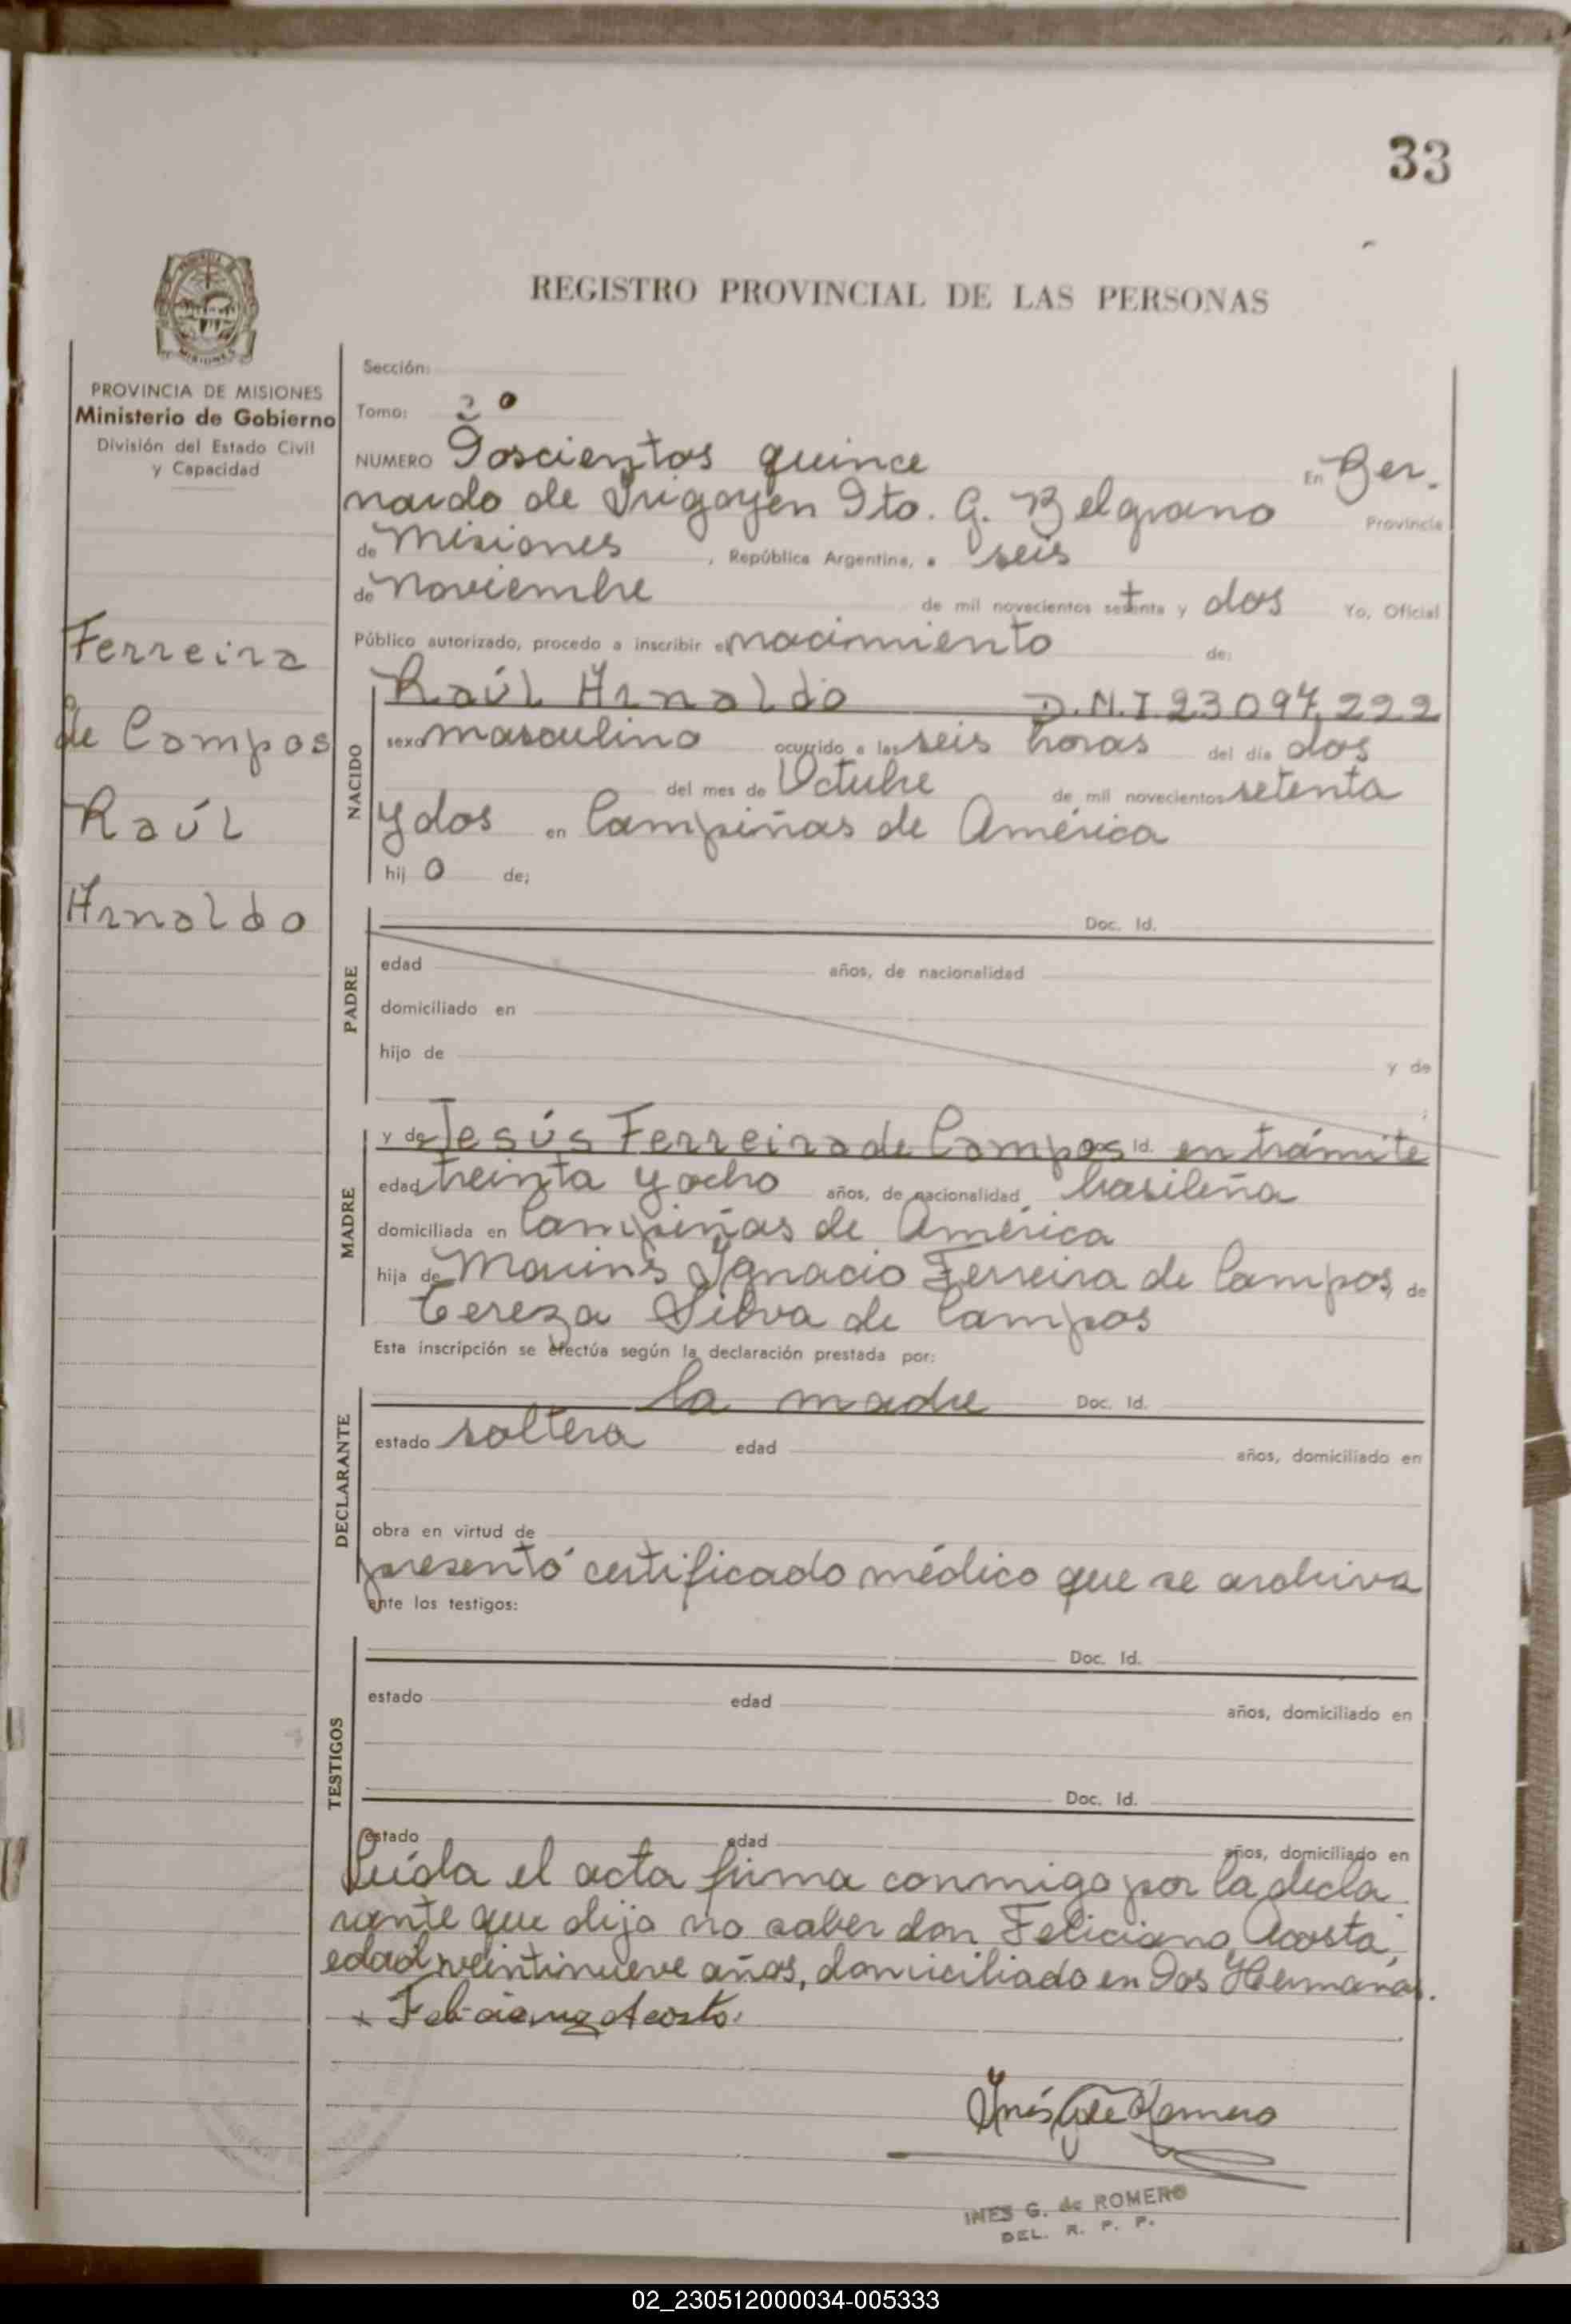 33
REGISTRO PROVINCIAL DE LAS PERSONAS
PROVINCIA DE MISIONES
Ministerio de Gobierno
División del Estado Civil
y Capacidad
Ferreira
de Campos
Raúl
Arnaldo
Sección:
Tomo: 2º
NUMERO Doscientos quince En Ber.
nardo de Irigoyen Dto. G. Belgrano Provincia
de Misiones, República Argentina, a seis
de Noviembre de mil novecientos setenta y dos Yo, Oficial
Público autorizado, procedo a inscribir el nacimiento de:
NACIDO
Raúl Arnaldo D.N.I 23097,222
sexo masculino ocurrido a las seis horas del día dos
del mes de Octubre de mil novecientos setenta
y dos en Campiñas de América
hijo de;
PADRE
Doc. Id.
edad años, de nacionalidad
domiciliado en
hijo de y de
MADRE
y de Jesús Ferreira de Campos Id. en trámite
edad treinta y ocho años, de nacionalidad brasileña
domiciliada en Campiñas de América
hija de Marins Ignacio Ferreira de Campos, de
Tereza Silva de Campos
Esta inscripción se efectúa según la declaración prestada por:
DECLARANTE
la madre Doc. Id.
estado soltera edad años, domiciliado en
obra en virtud de
presentó certificado médico que se archiva
ante los testigos:
TESTIGOS
Doc. Id.
estado edad años, domiciliado en
Doc. Id.
estado edad años, domiciliado en
Leída el acta firma conmigo por la decla
rante que dijo no saber don Feliciano Acosta,
edad veintinueve años, domiciliado en Dos Hermanas.
x Feliciano Acosta
Inés G de Romero
INES G. de ROMERO
DEL. R. P. P.
02_230512000034-005333